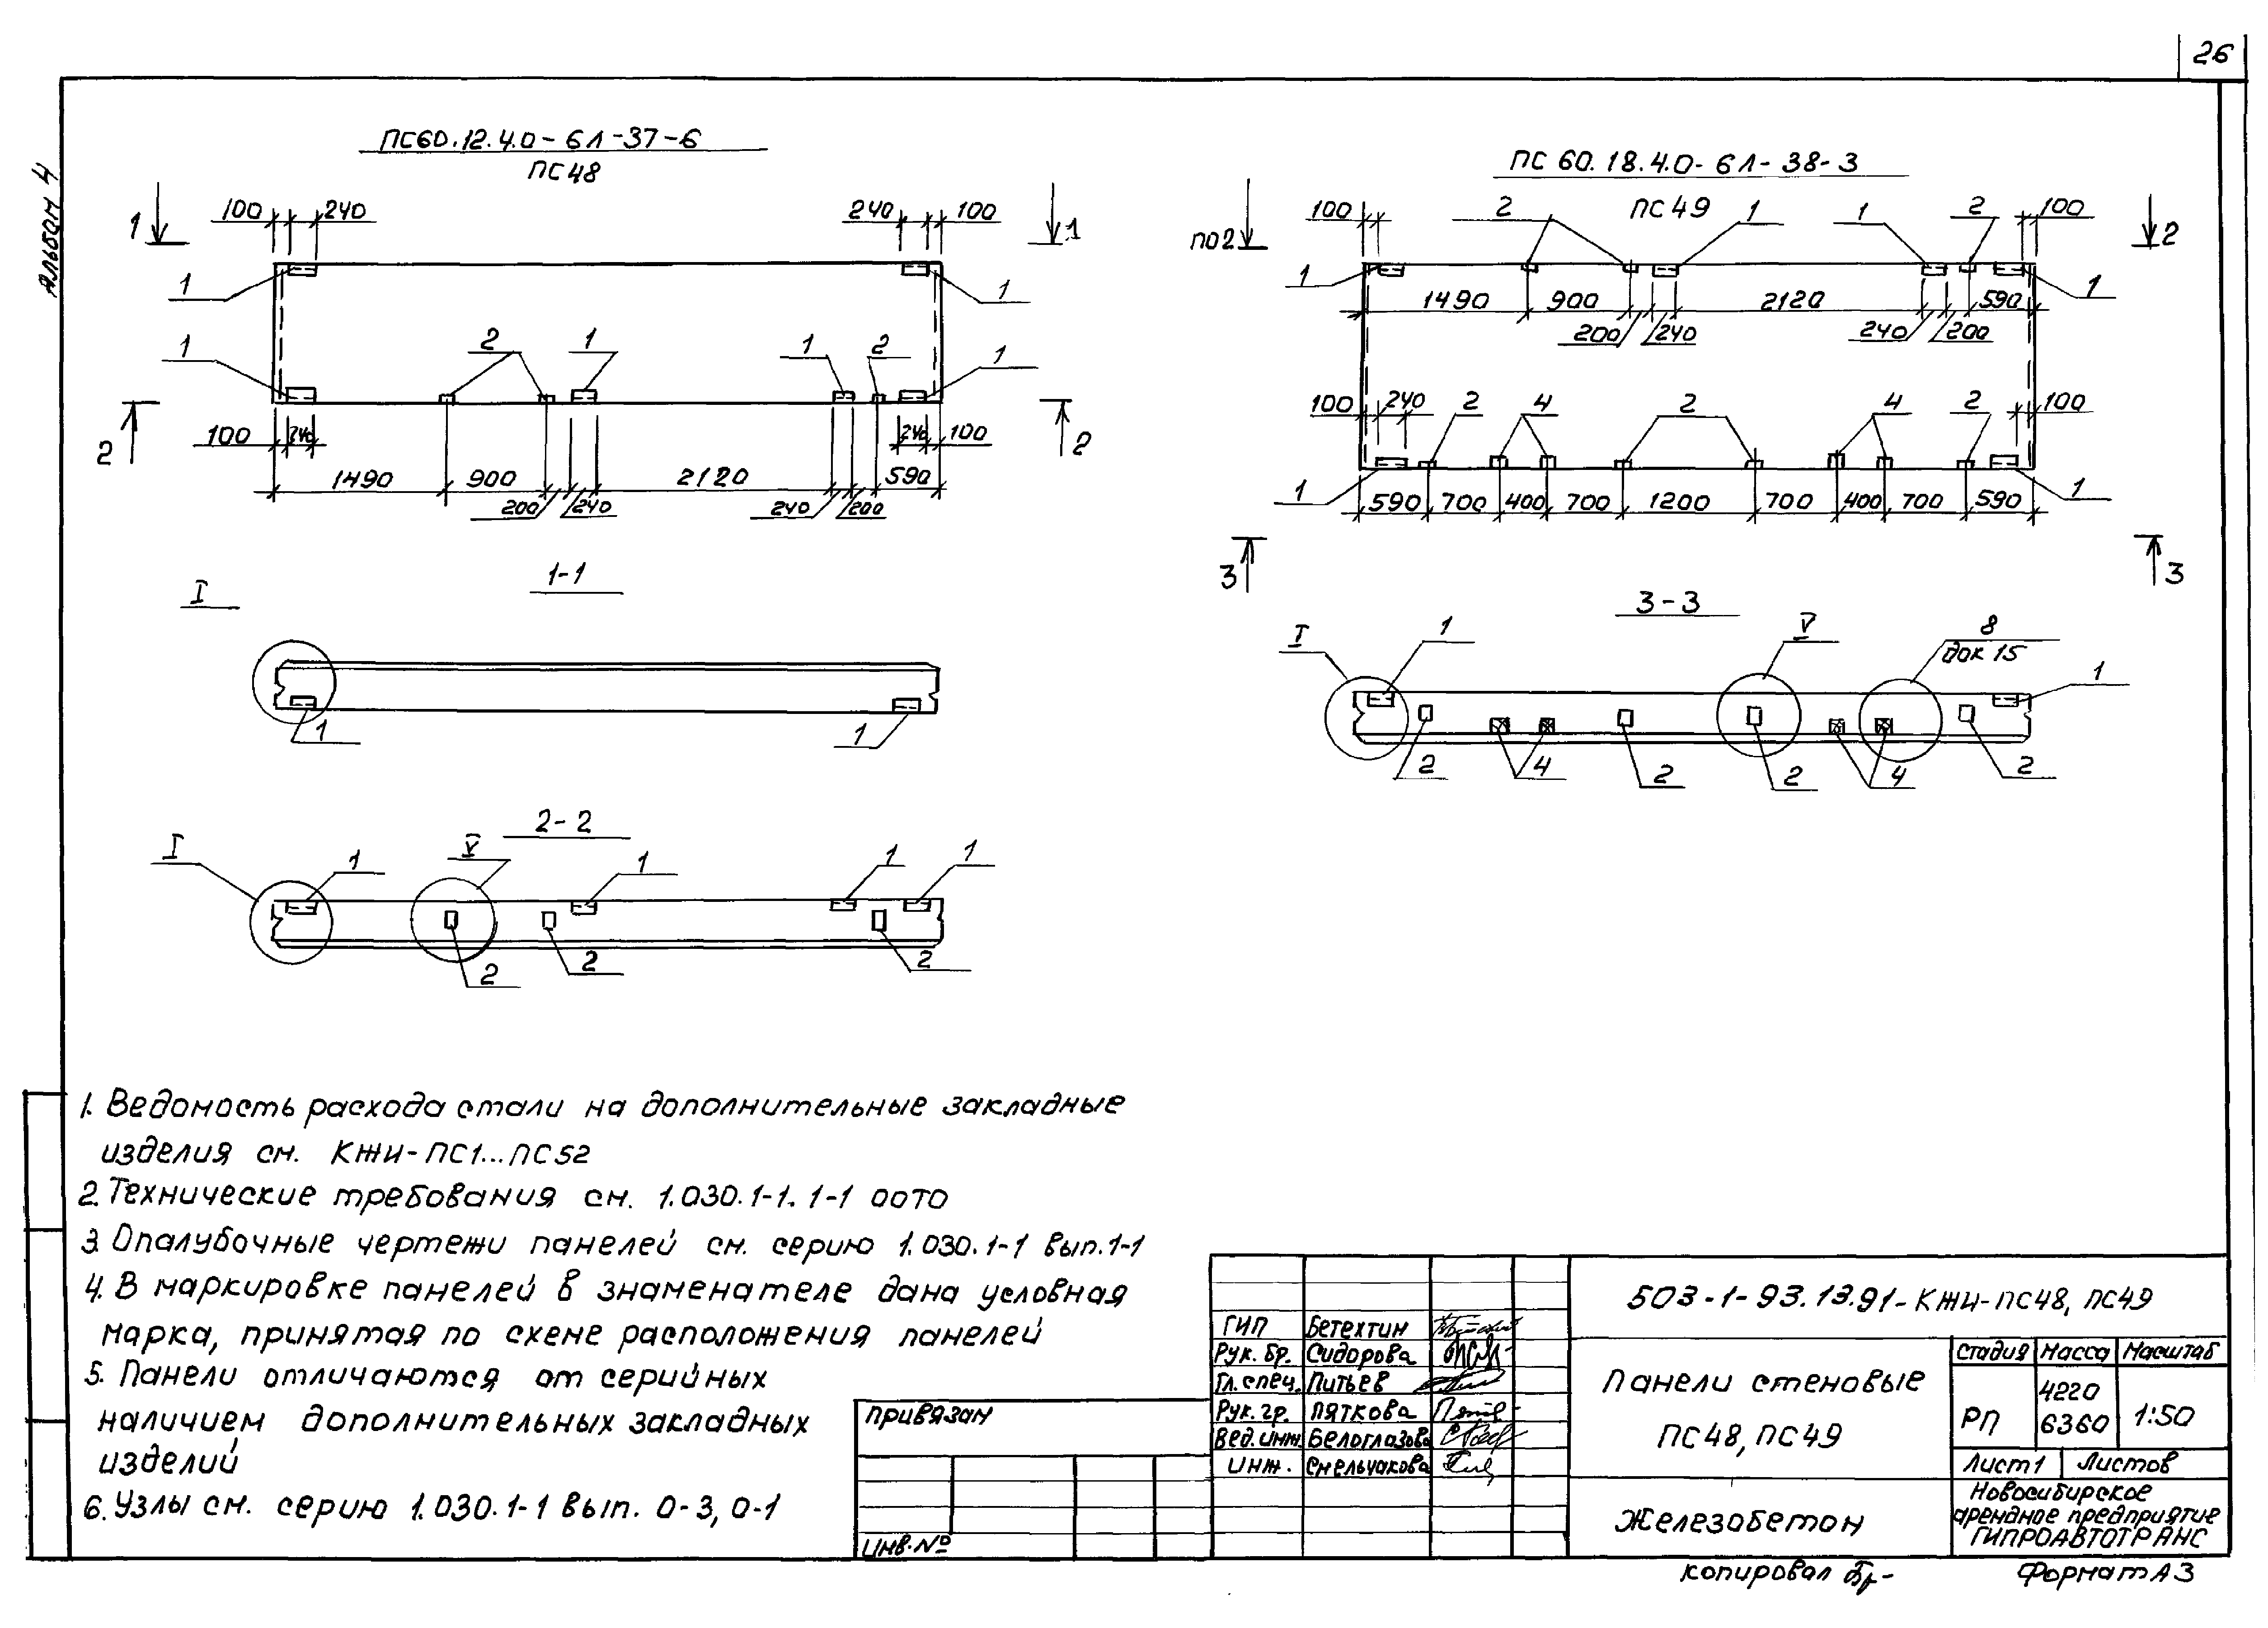 26
Альбом 4
ПС60.12.4.0-6Л-37-6
ПС48
1 100 240 240 100 1
1 1
1 2 1 1 2 1
2 100 240 240 100 2
1490 900 2120 590
200 240 240 200
1-1
I
1 1
2-2
I 1 V 1 1 1
2 2 2
ПС 60.18.4.0-6Л-38-3
ПС49
по2 100 2 1 1 2 100 2
1 1
1490 900 2120 590
200 240 240 200
100 240 2 4 2 4 2 100
1 1
590 700 400 700 1200 700 400 700 590
3 3
3-3
I 1 V 8
док 15
1
2 4 2 2 4 2
1. Ведомость расхода стали на дополнительные закладные
изделия см. КЖИ-ПС1...ПС52
2. Технические требования см. 1.030.1-1. 1-1 00ТО
3. Опалубочные чертежи панелей см. серию 1.030.1-1 вып.1-1
4. В маркировке панелей в знаменателе дана условная
марка, принятая по схеме расположения панелей
5. Панели отличаются от серийных
наличием дополнительных закладных
изделий
6. Узлы см. серию 1.030.1-1 вып. 0-3, 0-1
Привязан
Инв.№
ГИП Бетехтин
Рук. бр. Сидорова
Гл. спец. Питьев
Рук. гр. Пяткова
Вед. инж. Белоглазова
Инж. Смельчакова
503-1-93.13.91-КЖИ-ПС48, ПС49
Панели стеновые
ПС48, ПС49
Стадия Масса Масштаб
РП 4220
6360 1:50
Лист 1 Листов
Железобетон
Новосибирское
арендное предприятие
ГИПРОАВТОТРАНС
Копировал
Формат А3